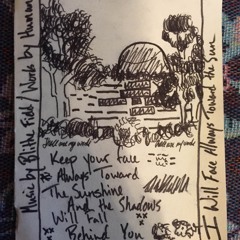 Music by Blithe Field / Words by Human
I Will Face Always Toward the Sun
Keep your face
Always Toward
The Sunshine
And the Shadows
Will Fall
Behind You